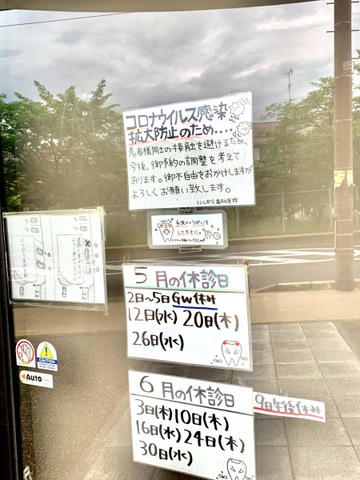 コロナウイルス感染
拡大防止のため....
患者様同士の接触を避けるため、
今後、御予約の調整を考えて
おります。御不自由をおかけしますが
よろしくお願い致します。
5月の休診日
2日〜5日GW休み
12日(水) 20日(木)
26日(水)
6月の休診日
3日(木)10日(木)
16日(水)24日(木)
30日(水)
9日午後休み
CAUTION
Auto